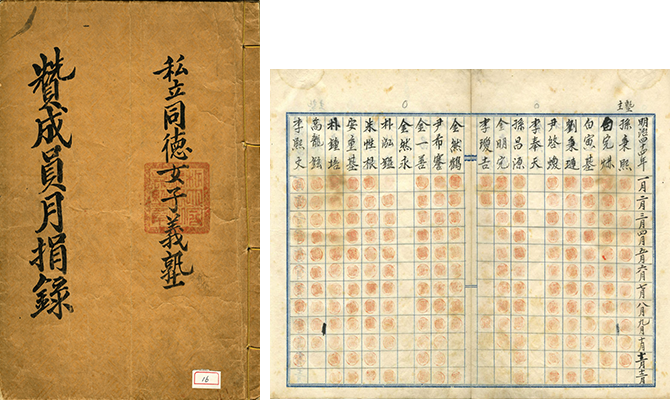 私立同德女子義塾
贊成員月捐錄
16
塾主
明治四四年 一月 二月 三月 四月 五月 六月 七月 八月 九月 十月 十一月 十二月
孫秉熙
白完爀
白寅基
劉秉璉
尹致暎
李奉天
孫昌源
金明完
李瓊吉
金然鶴
尹希謇
金一善
金然永
朴泓鎰
朱性根
安重基
朴鍾培
高龍鉉
李熙文